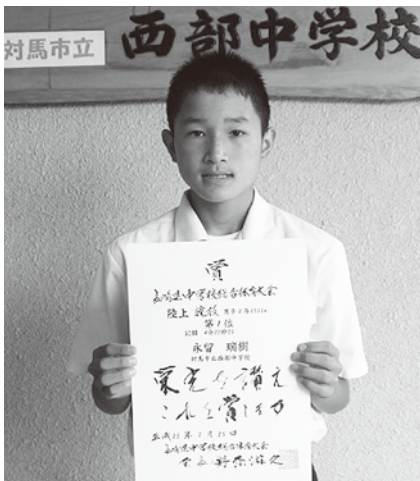 対馬市立 西部中学校
賞
長崎県中学校総合体育大会
陸上競技 男子2年1500m
第1位
記録
永留 瑞樹
対馬市立西部中学校
栄光を讃え
これを賞します
平成 年7月25日
長崎県中学校総合体育大会
会長